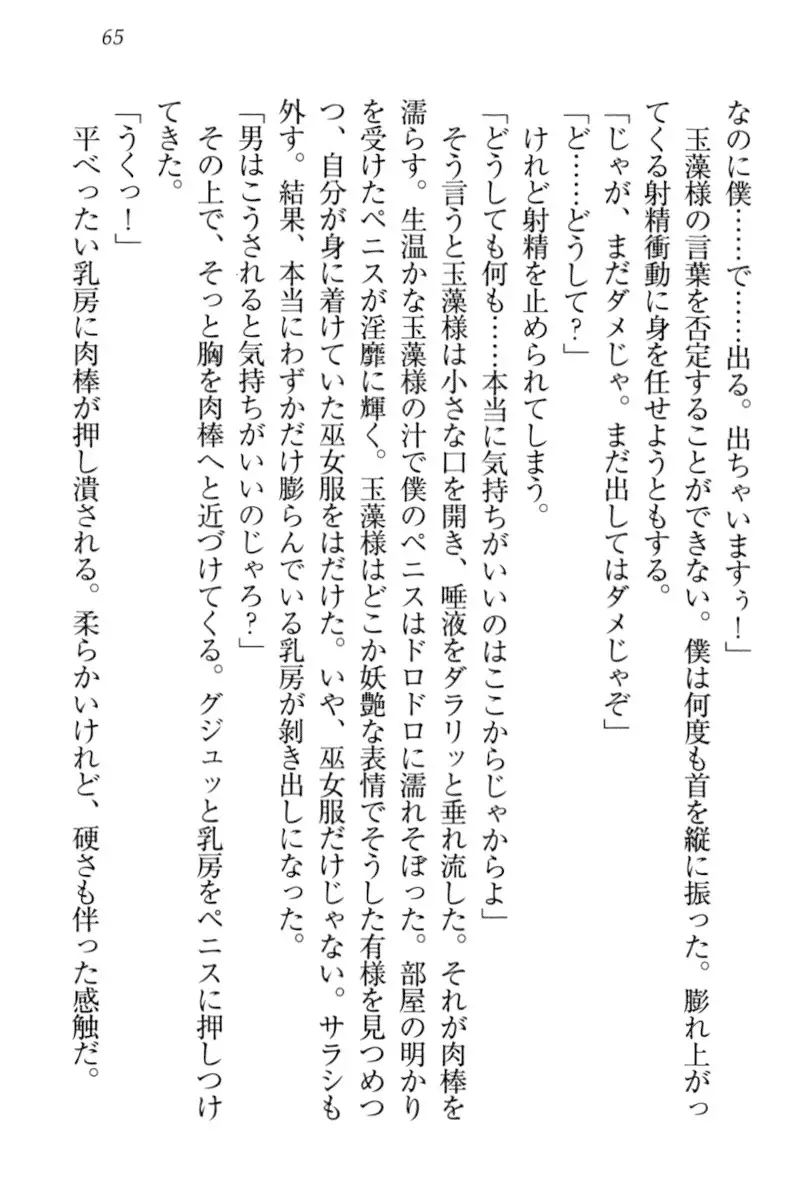 65
なのに僕……で……出る。出ちゃいますぅ！」
玉藻様の言葉を否定することができない。僕は何度も首を縦に振った。膨れ上がっ
てくる射精衝動に身を任せようともする。
「じゃが、まだダメじゃ。まだ出してはダメじゃぞ」
「ど……どうして？」
けれど射精を止められてしまう。
「どうしても何も……本当に気持ちがいいのはここからじゃからよ」
そう言うと玉藻様は小さな口を開き、唾液をダラリッと垂れ流した。それが肉棒を
濡らす。生温かな玉藻様の汁で僕のペニスはドロドロに濡れそぼった。部屋の明かり
を受けたペニスが淫靡に輝く。玉藻様はどこか妖艶な表情でそうした有様を見つめつ
つ、自分が身に着けていた巫女服をはだけた。いや、巫女服だけじゃない。サラシも
外す。結果、本当にわずかだけ膨らんでいる乳房が剥き出しになった。
「男はこうされると気持ちがいいのじゃろ？」
その上で、そっと胸を肉棒へと近づけてくる。グジュッと乳房をペニスに押しつけ
てきた。
「うくっ！」
平べったい乳房に肉棒が押し潰される。柔らかいけれど、硬さも伴った感触だ。